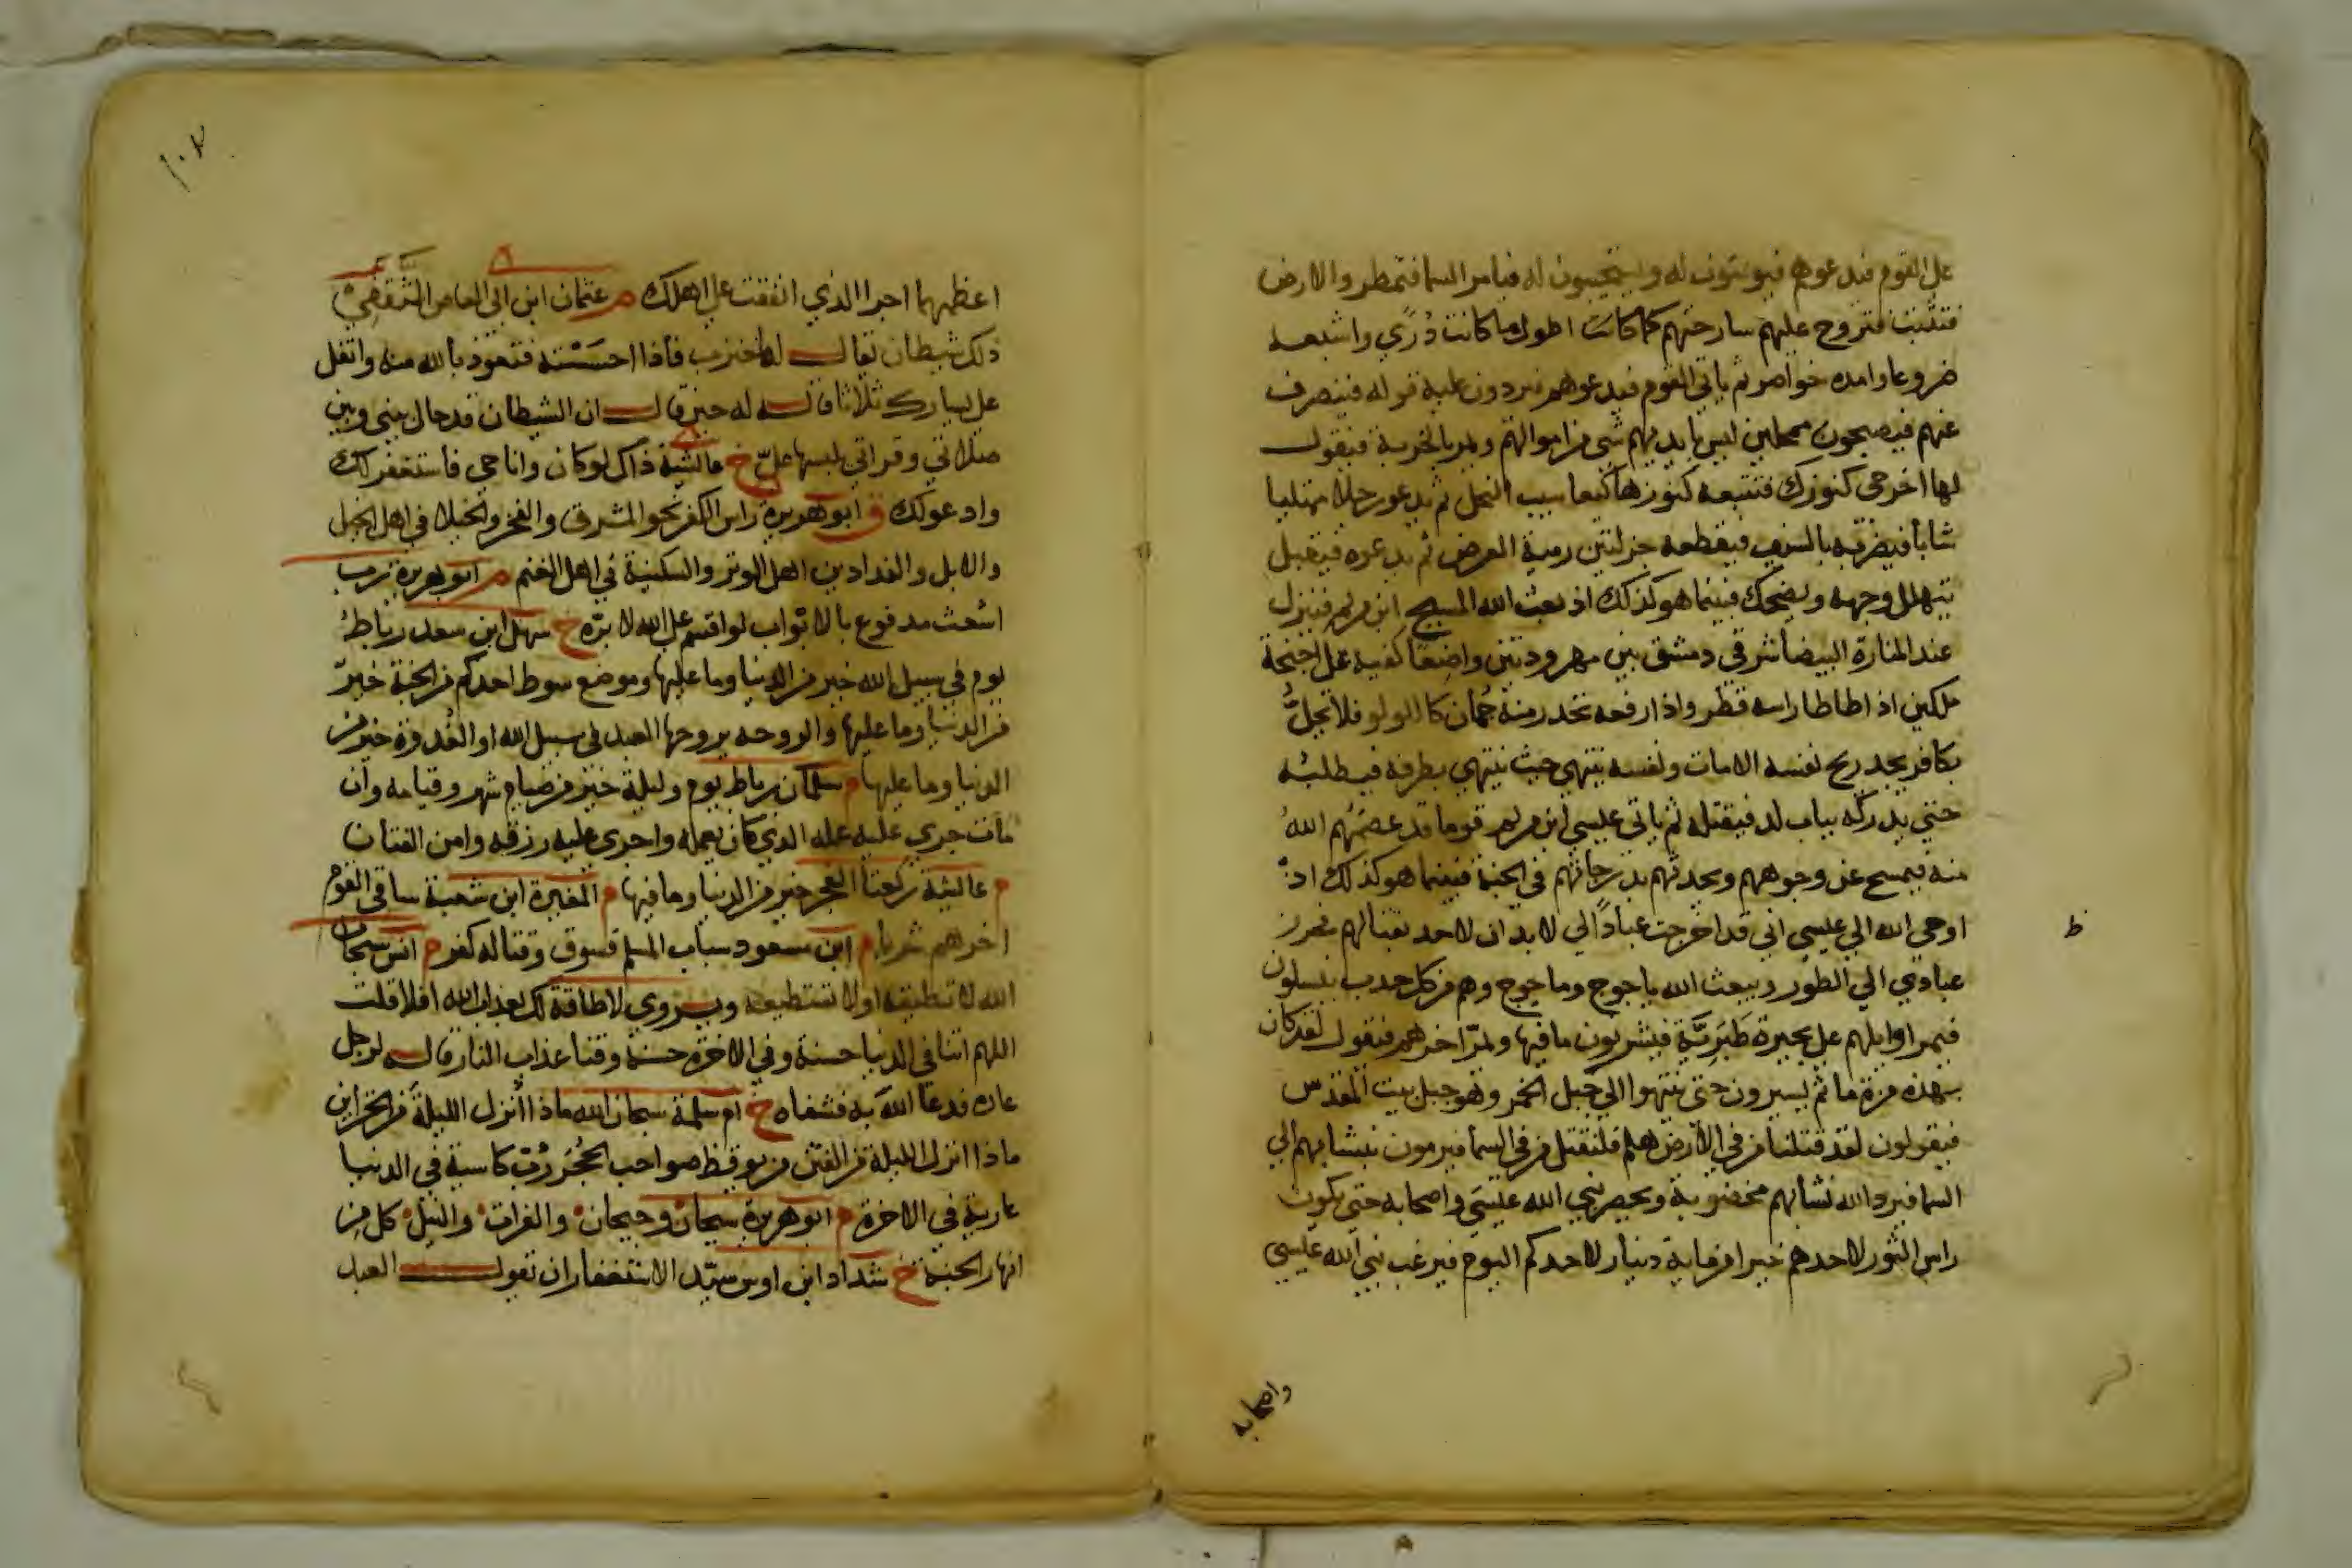 علي القوم فيدعوهم فيومنون له ويستجيبون له فيامر السما فتمطر والارض
فتنبت فتروح عليهم سارحتهم كما كانت اطول ما كانت دُرًي واشبعه
ضروعا وامده خواصر ثم ياتي القوم فيدعوهم فيردون عليه قوله فينصرف
عنهم فيصبحون ممحلين ليس بايديهم شي من اموالهم ويمر بالخربة فيقول
لها اخرجي كنوزك فتتبعه كنوزها كيعاسيب النحل ثم يدعو رجلا ممتليا
شابا فيضربه بالسيف فيقطعه جزلتين رمية الغرض ثم يدعوه فيقبل
يتهلل وجهه ويضحك فبينما هو كذلك اذ بعث الله المسيح ابن مريم فينزل
عند المنارة البيضا شرقي دمشق بين مهرودتين واضعًا كفيه علي اجنحة
ملكين اذا طاطا راسه قطر واذا رفعه تحدر منه جُمان كاللولو فلا يحلُّ
بكافر يجد ريح نفسه الا مات ونفسه ينتهي حيث ينتهي بطرفه فيطلبه
حتي يدركه بباب لد فيقتله ثم ياتي عيسي ابن مريم قوما قد عصمهم اللهُ
منه فيمسح عن وجوههم ويحدثهم بدرجاتهم في الجنة فبينما هو كذلك اذْ
اوحي الله الي عيسي اني قد اخرجت عبادًا لي لا يدان لاحد بقتالهم فحرز
ط
عبادي الي الطور ويبعث الله ياجوج وماجوج وهم من كل حدب ينسلون
فيمر اوايلهم علي بحيرة طَبَريَّة فيشربون ما فيها ويمرّ اخرهم فيقول لقد كان
بهذه مرة ما ثم يسيرون حتى ينتهوا الي جبل الخمر وهو جبل بيت المقدس
فيقولون لقد قتلنا من في الارض هلم فلنقتل من في السما فيرمون بنشابهم الي
السما فيرد الله نشابهم مخضوبة ويحصر نبي الله عيسَي واصحابه حتى يكون
راس الثور لاحدهم خيرا من ماية دينار لاحدكم اليوم فيرغب نبي الله عيسي
واصحابه
١٠٢
اعظمهما اجرا الذي انفقت علي اهلك م عثمان ابن ابي العاص الثَّقَفِيّ
ذلك شيطان يقال له خنزب فاذا احسَسْته فتعوذ بالله منه واتفل
علي يسارك ثلاثا قاله له حين قال ان الشيطان قد حال بيني وبين
صلاتي وقراتي يلبسها عليّ خ عائشة ذاك لو كان وانا حي فاستغفر لك
وادعو لك ق ابو هريرة راس الكفر نحو المشرق والفخر والخيلا في اهل الخيل
والابل والفدادين اهل الوبر والسكينة في اهل الغنم م ابو هريرة رب
اشعث مدفوع بالابواب لو اقسم علي الله لابرّه خ سهل ابن سعد رباطُ
يوم في سبيل الله خير من الدنيا وما عليها وموضع سوط احدكم من الجنة خيرٌ
من الدنيا وما عليها والروحه يروحها العبد في سبيل الله او الغُدْوة خير من
الدنيا وما عليها م سلمان رباط يوم وليلة خير من صيام شهر وقيامه وان
مات جري عليه عمله الذي كان يعمله واجري عليه رزقه وامن الفتان
م عائشة ركعتا الفجر خير من الدنيا وما فيها م المغيرة ابن شعبة ساقي القوم
اخرهم شربا م ابن مسعود سباب المسلم فسوق وقتاله كفر م انس سبحان
الله لا تطيقه او لا تستطيعه ويروي لا طاقة لك بعذاب الله افلا قلت
اللهم اتنا في الدنيا حسنة وفي الاخرة حسنة وقنا عذاب النار قاله لرجل
عاده فدعا اللهَ به فشفاه خ ام سلمة سبحان الله ماذا اُنزل الليلة من الخزاين
ماذا انزل الليلة من الفتن من يوقظ صواحب الحُجَر رُبّ كاسية في الدنيا
عارية في الاخرة م ابو هريرة سيحان وجيحان والفرات والنيل كل من
انهار الجنة خ شداد ابن اوس سيّد الاستغفار ان تقول العبد